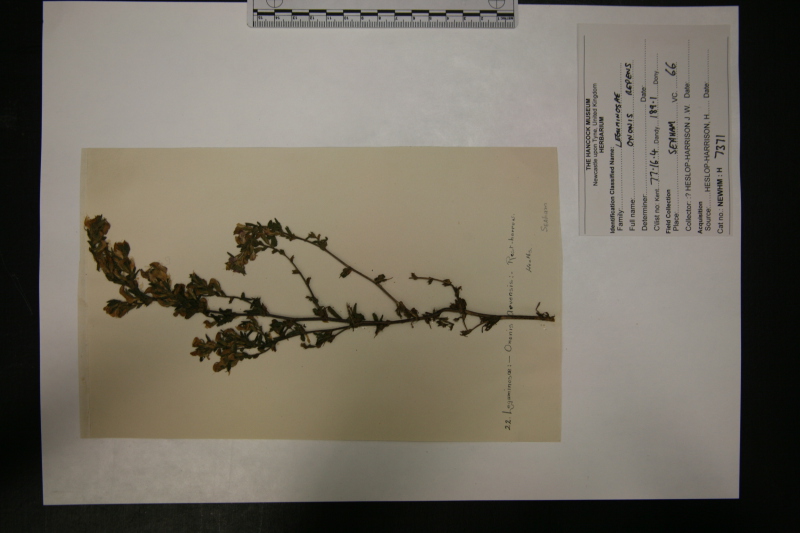 THE HANCOCK MUSEUM
Newcastle upon Tyne, United Kingdom
HERBARIUM
Identification Classified Name:
Family: LEGUMINOSAE
Full name: ONONIS REPENS
Determiner: Date:
C/ast no: Kent: 77.16.4 Dandy: 189.1 Dony:
Field Collection
Place: SEAHAM VC: 66
Collector: ? HESLOP-HARRISON J. W. Date:
Acquisition
Source: HESLOP-HARRISON, H. Date:
Cat no.: NEWHM : H 7371
22. Leguminosae:- Ononis arvensis:- Rest-harrow
Seaham